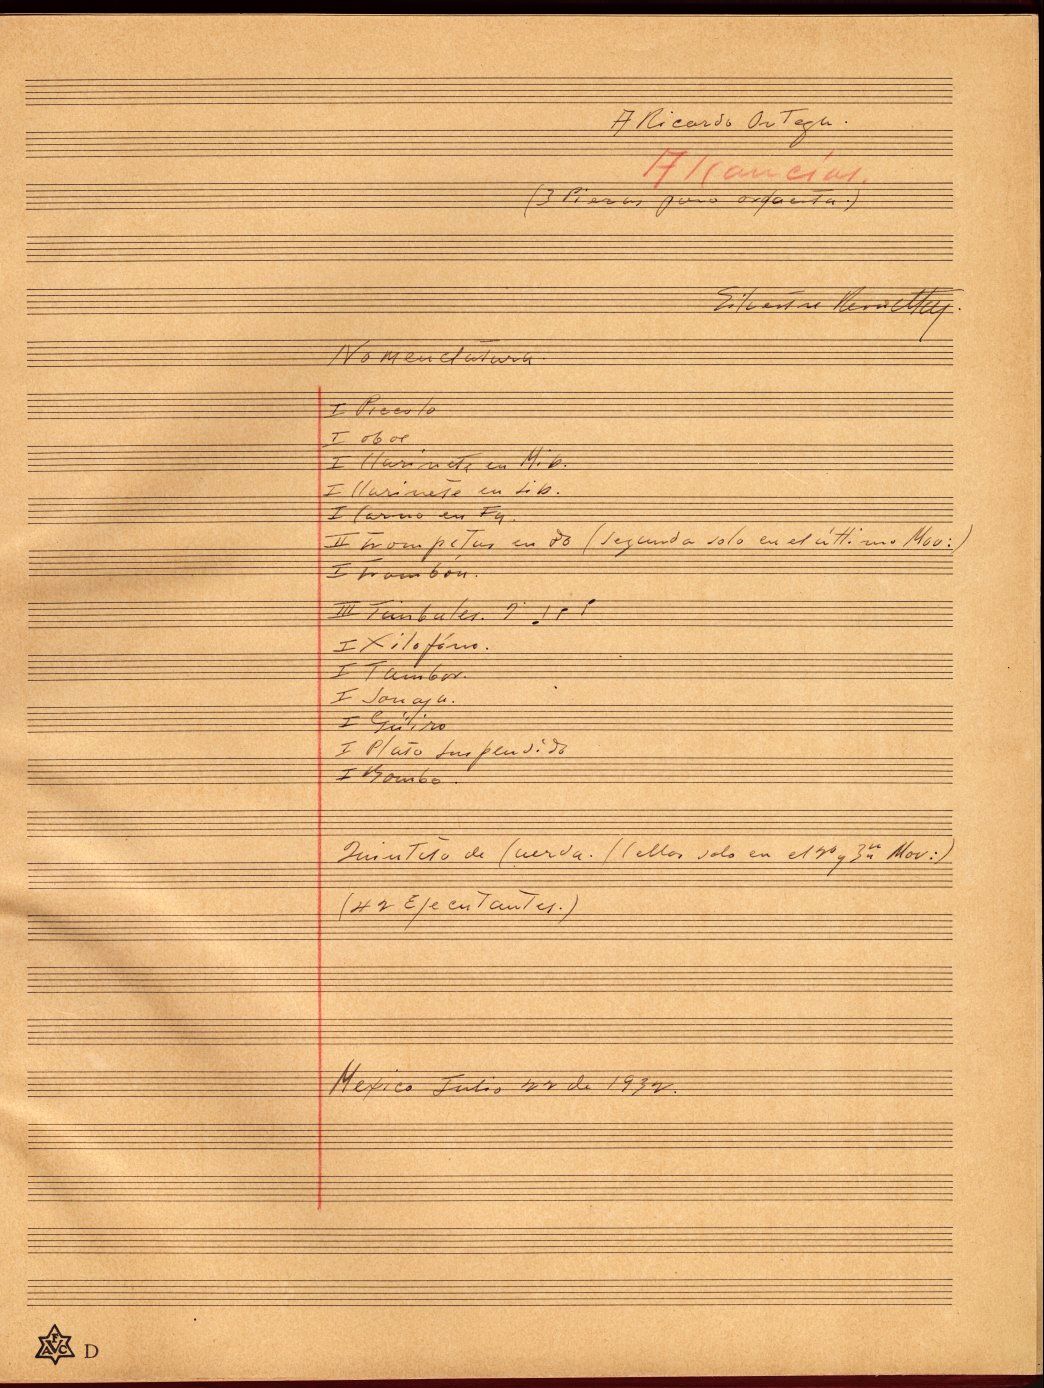 A Ricardo Ortega.
Alcancías.
(3 Piezas para orquesta.)
Silvestre Revueltas.
Nomenclatura.
I Piccolo
I oboe
I Clarinete en Mib.
I Clarinete en sib.
I Corno en Fa.
II trompetas en do (segunda solo en el último Mov:)
I trombon.
III Timbales.
I Xilofóno.
I Tambor.
I Sonaja.
I Güiro
I Plato suspendido
I Bombo.
Quinteto de Cuerda. (Cellos solo en el 2º y 3er Mov:)
(42 Ejecutantes.)
Mexico Julio 22 de 1932.
F
AVC D